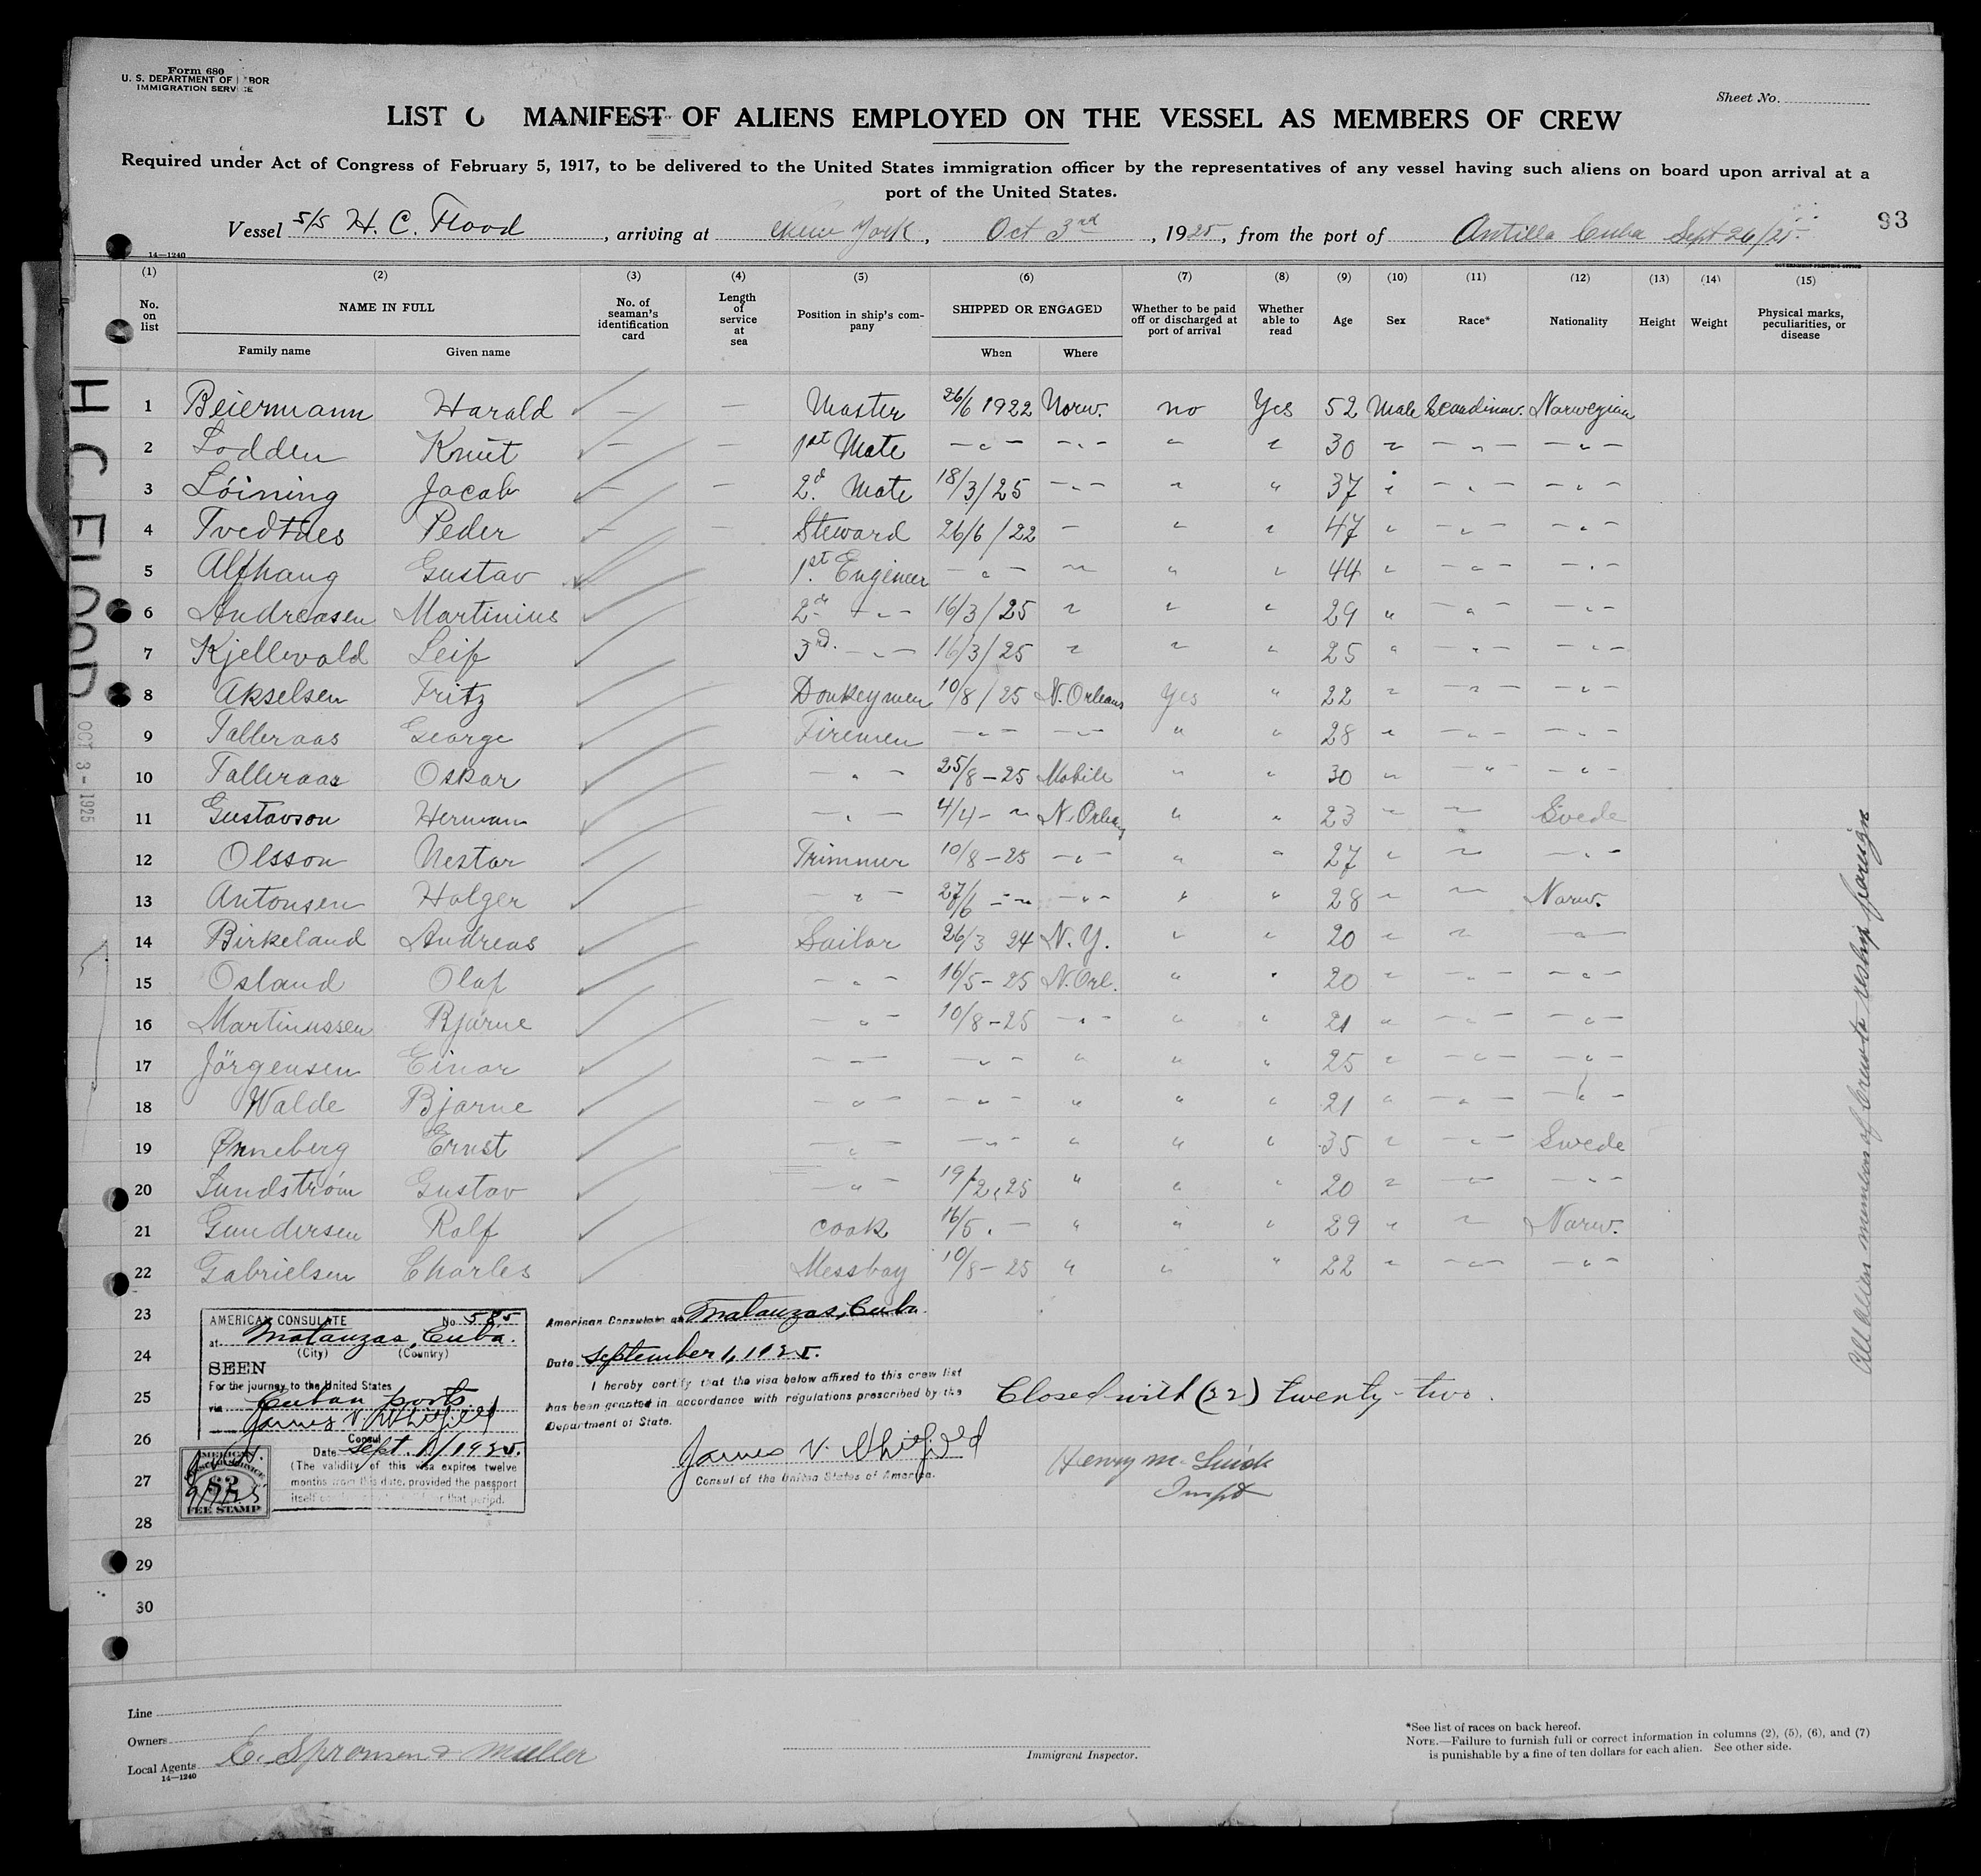 Form 680
U. S. DEPARTMENT OF LABOR
IMMIGRATION SERVICE
Sheet No.
LIST O MANIFEST OF ALIENS EMPLOYED ON THE VESSEL AS MEMBERS OF CREW
Required under Act of Congress of February 5, 1917, to be delivered to the United States immigration officer by the representatives of any vessel having such aliens on board upon arrival at a
port of the United States.
Vessel S/S H. C. Flood, arriving at New York, Oct 3rd, 1925, from the port of Antilla Cuba Sept 26/25.
93
14—1240
GOVERNMENT PRINTING OFFICE
(1) (2) (3) (4) (5) (6) (7) (8) (9) (10) (11) (12) (13) (14) (15)
No. on list NAME IN FULL No. of seaman's identification card Length of service at sea Position in ship's company SHIPPED OR ENGAGED Whether to be paid off or discharged at port of arrival Whether able to read Age Sex Race* Nationality Height Weight Physical marks, peculiarities, or disease
Family name Given name When Where
1 Beiermann Harald — — Master 26/6 1922 Norw. no Yes 52 Male Scandinav. Norwegian
2 Lodden Knut — — 1st Mate — " — — " — " " 30 " — " — — " —
3 Löining Jacob — — 2d. Mate 18/3/25 — " — " " 37 " — " — — " —
4 Tvedtnes Peder — — Steward 26/6/22 — " " 47 " — " — — " —
5 Alfhaug Gustav 1st. Engineer — " — " " " 44 " — " — — " —
6 Andreasen Martinius 2nd — " — 16/3/25 " " " 29 " — " — — " —
7 Kjellevold Leif 3rd. — " — 16/3/25 " " " 25 " — " — — " —
8 Akselsen Fritz Donkeymen 10/8/25 N. Orleans Yes " 22 " — " — — " —
9 Talleraas George Firemen — " — — " — " " 28 " — " — — " —
10 Talleraas Oskar — " — 25/8 – 25 Mobile " " 30 " — " — — " —
11 Gustavson Herman — " — 4/4 – " N. Orleans " " 23 " " Svede
12 Olsson Nestor Trimmer 10/8 – 25 — " — " " 27 " " — " —
13 Antonsen Holger — " — 27/6 – " — " — " " 28 " " Norw.
14 Birkeland Andreas Sailor 26/3 24 N. Y. " " 20 " " — " —
15 Osland Olaf — " — 16/5 – 25 N. Orl. " " 20 " — " — — " —
16 Martinussen Bjarne — " — 10/8 – 25 — " — " " 21 " — " — — " —
17 Jörgensen Einar — " — — " — " " " 25 " — " — — " —
18 Walde Bjarne — " — — " — " " " 21 " — " — — " —
19 Ønneberg Ernst — " — — " — " " " 35 " — " — Swede
20 Lundström Gustav — " — 19/2, 25 " " " 20 " — " — — " —
21 Gundersen Rolf cook 16/5. — " " " 29 " " Norw.
22 Gabrielsen Charles Messboy 10/8 – 25 " " " 22 " — " — — " —
23
24
25
26
27
28
29
30
H C FLOOD
OCT 3 - 1925
All alien members of crew to reship foreign
AMERICAN CONSULATE No. 585
at Matanzas, Cuba.
(City) (Country)
SEEN
For the journey to the United States
via Cuban ports
James V. Whitfield
Consul
Date Sept. 1/1925.
(The validity of this visa expires twelve
months from this date, provided the passport
itself that period.
AMERICAN
$2
FEE STAMP
9/1/25
American Consulate at Matanzas, Cuba.
Date September 1, 1925.
I hereby certify that the visa below affixed to this crew list
has been granted in accordance with regulations prescribed by the
Department of State.
James V. Whitfield
Consul of the United States of America.
Closed with (22) twenty-two.
Henry
Inspt
Line
Owners
Local Agents
14—1240
Immigrant Inspector.
*See list of races on back hereof.
NOTE.—Failure to furnish full or correct information in columns (2), (5), (6), and (7)
is punishable by a fine of ten dollars for each alien. See other side.